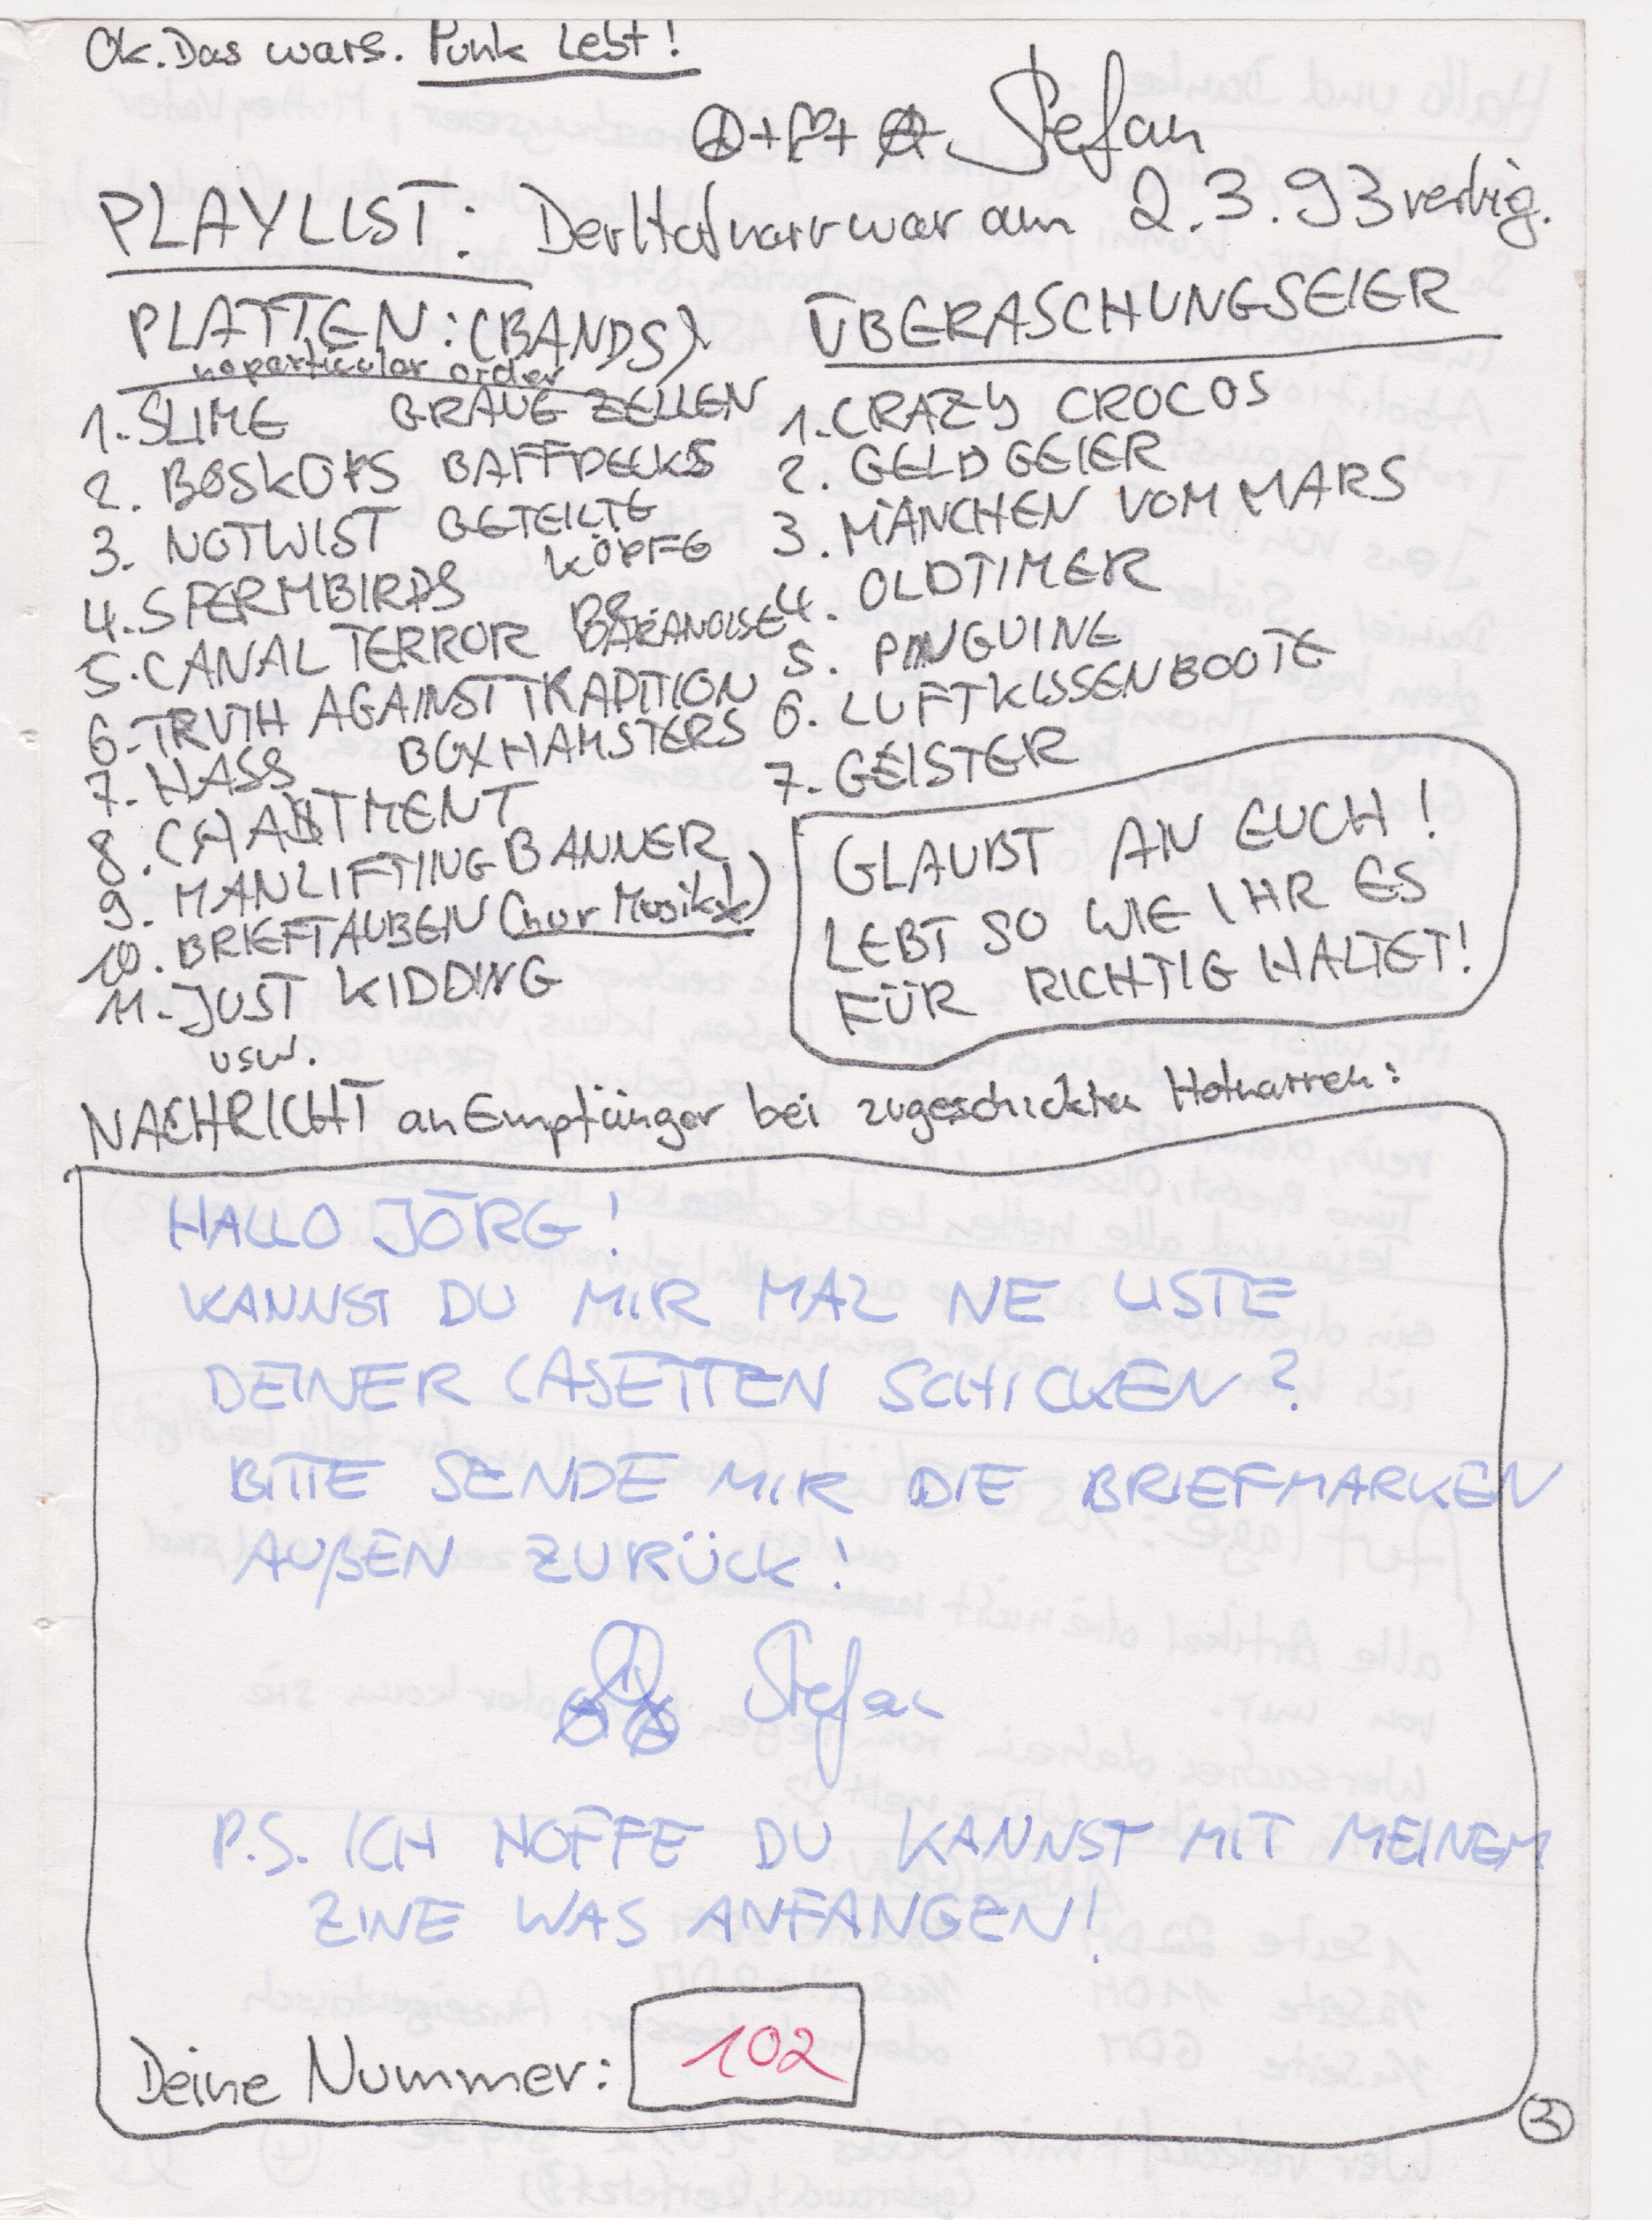 Ok. Das wars. Punk Lebt!
Stefan
PLAYLIST: Der Hofnarr war am 2.3.93 vertig.
PLATTEN: (BANDS)
no particular order
1. SLIME GRAUE ZELLEN
2. BOSKOPS BAFFDECKS
3. NOTWIST GETEILTE
KÖPFE
4. SPERMBIRDS
5. CANAL TERROR
6. TRUTH AGAINST TRADITION
7. HASS BOXHAMSTERS
8. CHARTMENT
9. MANLIFTINGBANNER
10. BRIEFTAUBEN (nur Musik)
11. JUST KIDDING
usw.
ÜBERASCHUNGSEIER
1. CRAZY CROCOS
2. GELDGEIER
3. MÄNCHEN VOM MARS
4. OLDTIMER
5. PINGUINE
6. LUFTKISSENBOOTE
7. GEISTER
GLAUBT AN EUCH!
LEBT SO WIE IHR ES
FÜR RICHTIG HALTET!
NACHRICHT an Empfänger bei zugeschickten Hofnarren:
HALLO JÖRG!
KANNST DU MIR MAL NE LISTE
DEINER CASETTEN SCHICKEN?
BITTE SENDE MIR DIE BRIEFMARKEN
AUßEN ZURÜCK!
Stefan
P.S. ICH HOFFE DU KANNST MIT MEINEM
ZINE WAS ANFANGEN!
Deine Nummer: 102
3